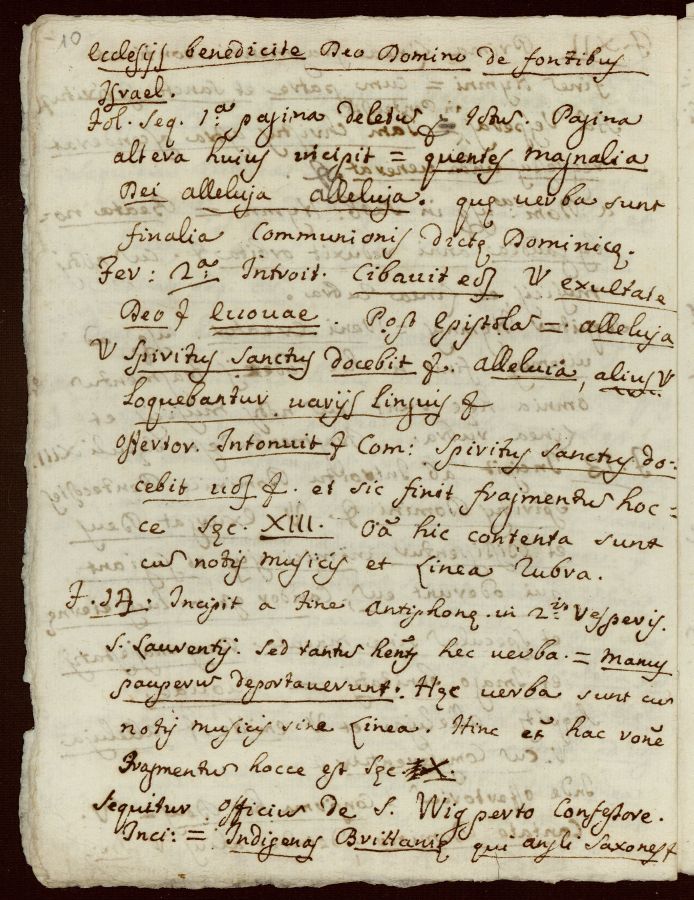 10
Ecclesijs benedicite Deo Domino de fontibus
Israel.
Fol. Seq. 1.ª pagina deletus Istus. Pagina
altera huius incipit = quentes magnalia
Dei alleluja alleluja. quę verba sunt
finalia Communionis dictę Dominicę.
Fer: 2.ª Introit. Cibavit eos V exultate
Deo euouae. Post Epistolā = alleluja
V Spiritus sanctus docebit. alleluia, alius V
Loquebantur varijs linguis
offertor. Intonuit Com: Spiritus sanctus do-
cebit vos. et sic finit fragmentus hoc=
ce Sęc. XIII. Oā hic contenta sunt
cū notis musicis et Linea rubra.
F. 14: Incipit a fine Antiphonę in 2.is Vesperis.
S. Laurentij. Sed tantū hentr hec verba = manus
pauperū deportaverunt. Hęc verba sunt cū
notis musicis sine Linea. Hinc et hac rone
Fragmentū hocce est Sęc. IX.
Sequitur officiū de S. Wigperto Confessore.
Inci: = Indigenas Brittanię qui angli Saxones